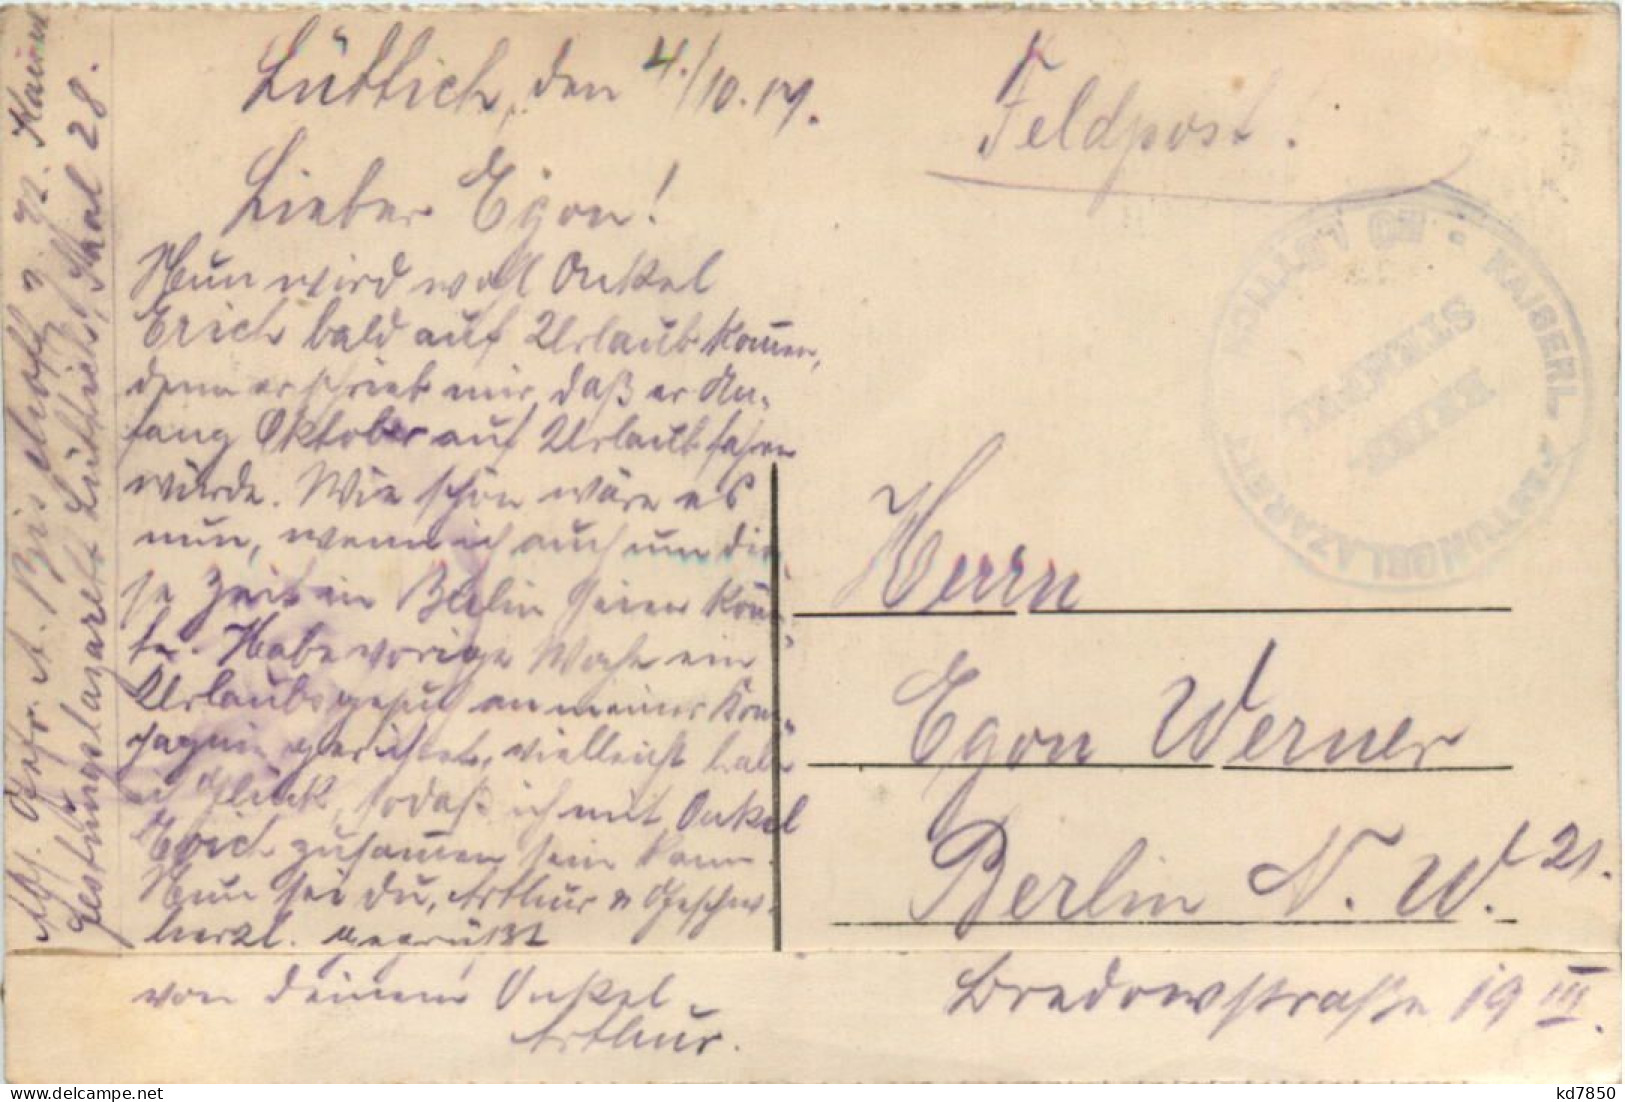 Lüttich, den 4./10.17.
Lieber Egon!
Nun wird wohl Onkel
Erich bald auf Urlaub kommen,
denn er schrieb mir, daß er An-
fang Oktober auf Urlaub fahren
würde. Wie schön wäre es
nun, wenn ich auch um die-
se Zeit in Berlin sein könn-
te. Habe vorige Woche ein
Urlaubsgesuch an meine Kom-
pagnie gerichtet, vielleicht habe
ich Glück, sodaß ich mit Onkel
Erich zusammen sein kann.
Nun sei du, Arthur u Geschw.
herzl. gegrüßt
von deinem Onkel
Arthur.
Festungslazarett Lüttich, Saal 28.
Feldpost.
KAISERL. FESTUNGSLAZARETT
LÜTTICH
BRIEF-
STEMPEL
Herrn
Egon Werner
Berlin N. W. 21.
Bredowstraße 19 III.
kd7850